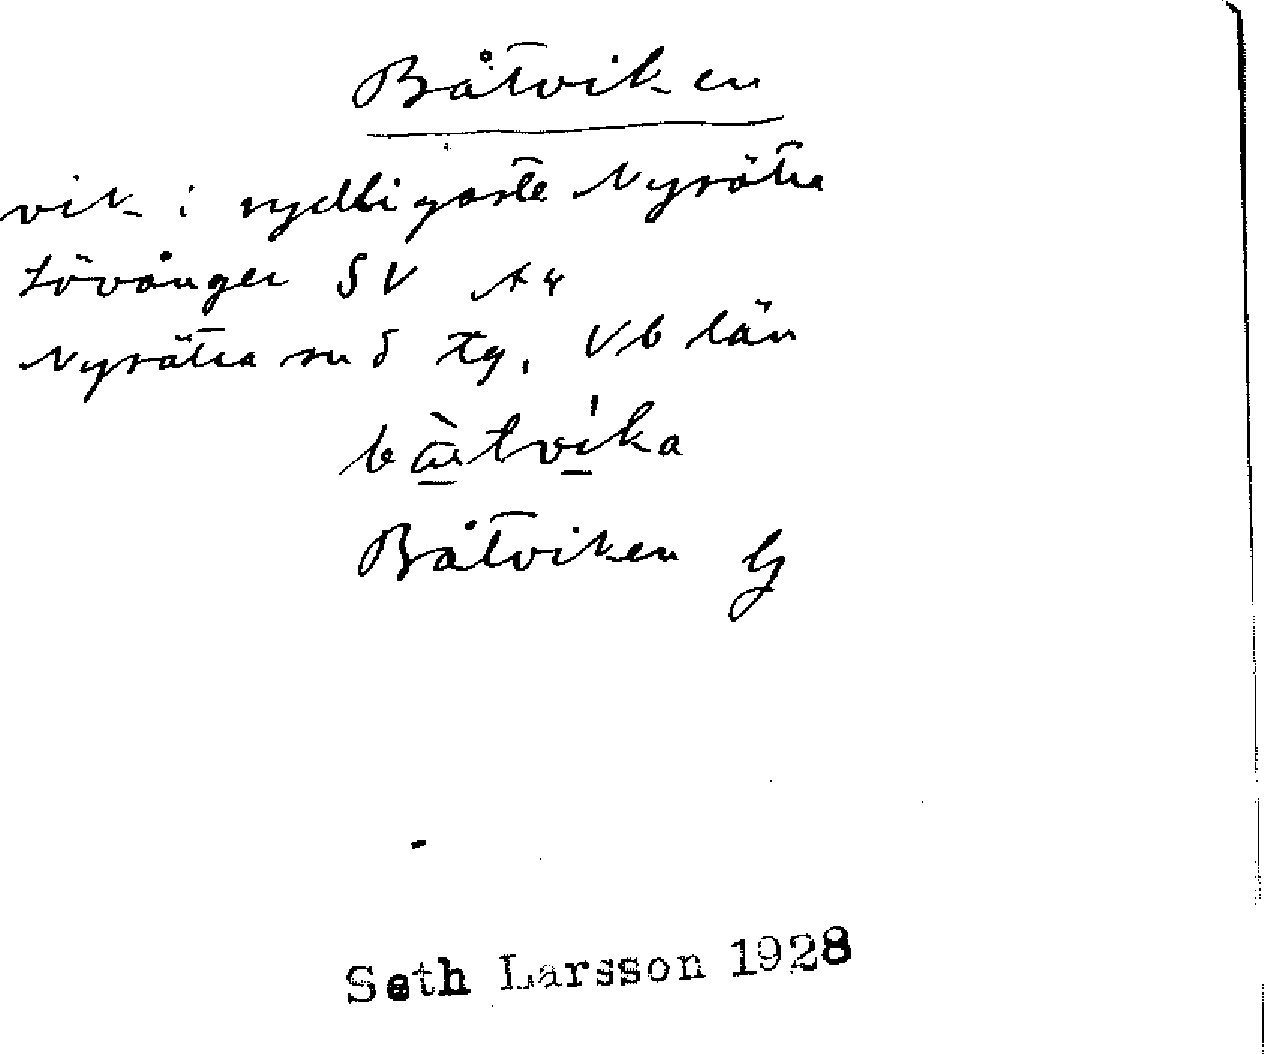 Båtviken
vik i sydligaste Nysätra
Lövånger SV
Nysätra sn S tg, Vb län
bàtvika
Båtviken G
Seth Larsson 1928